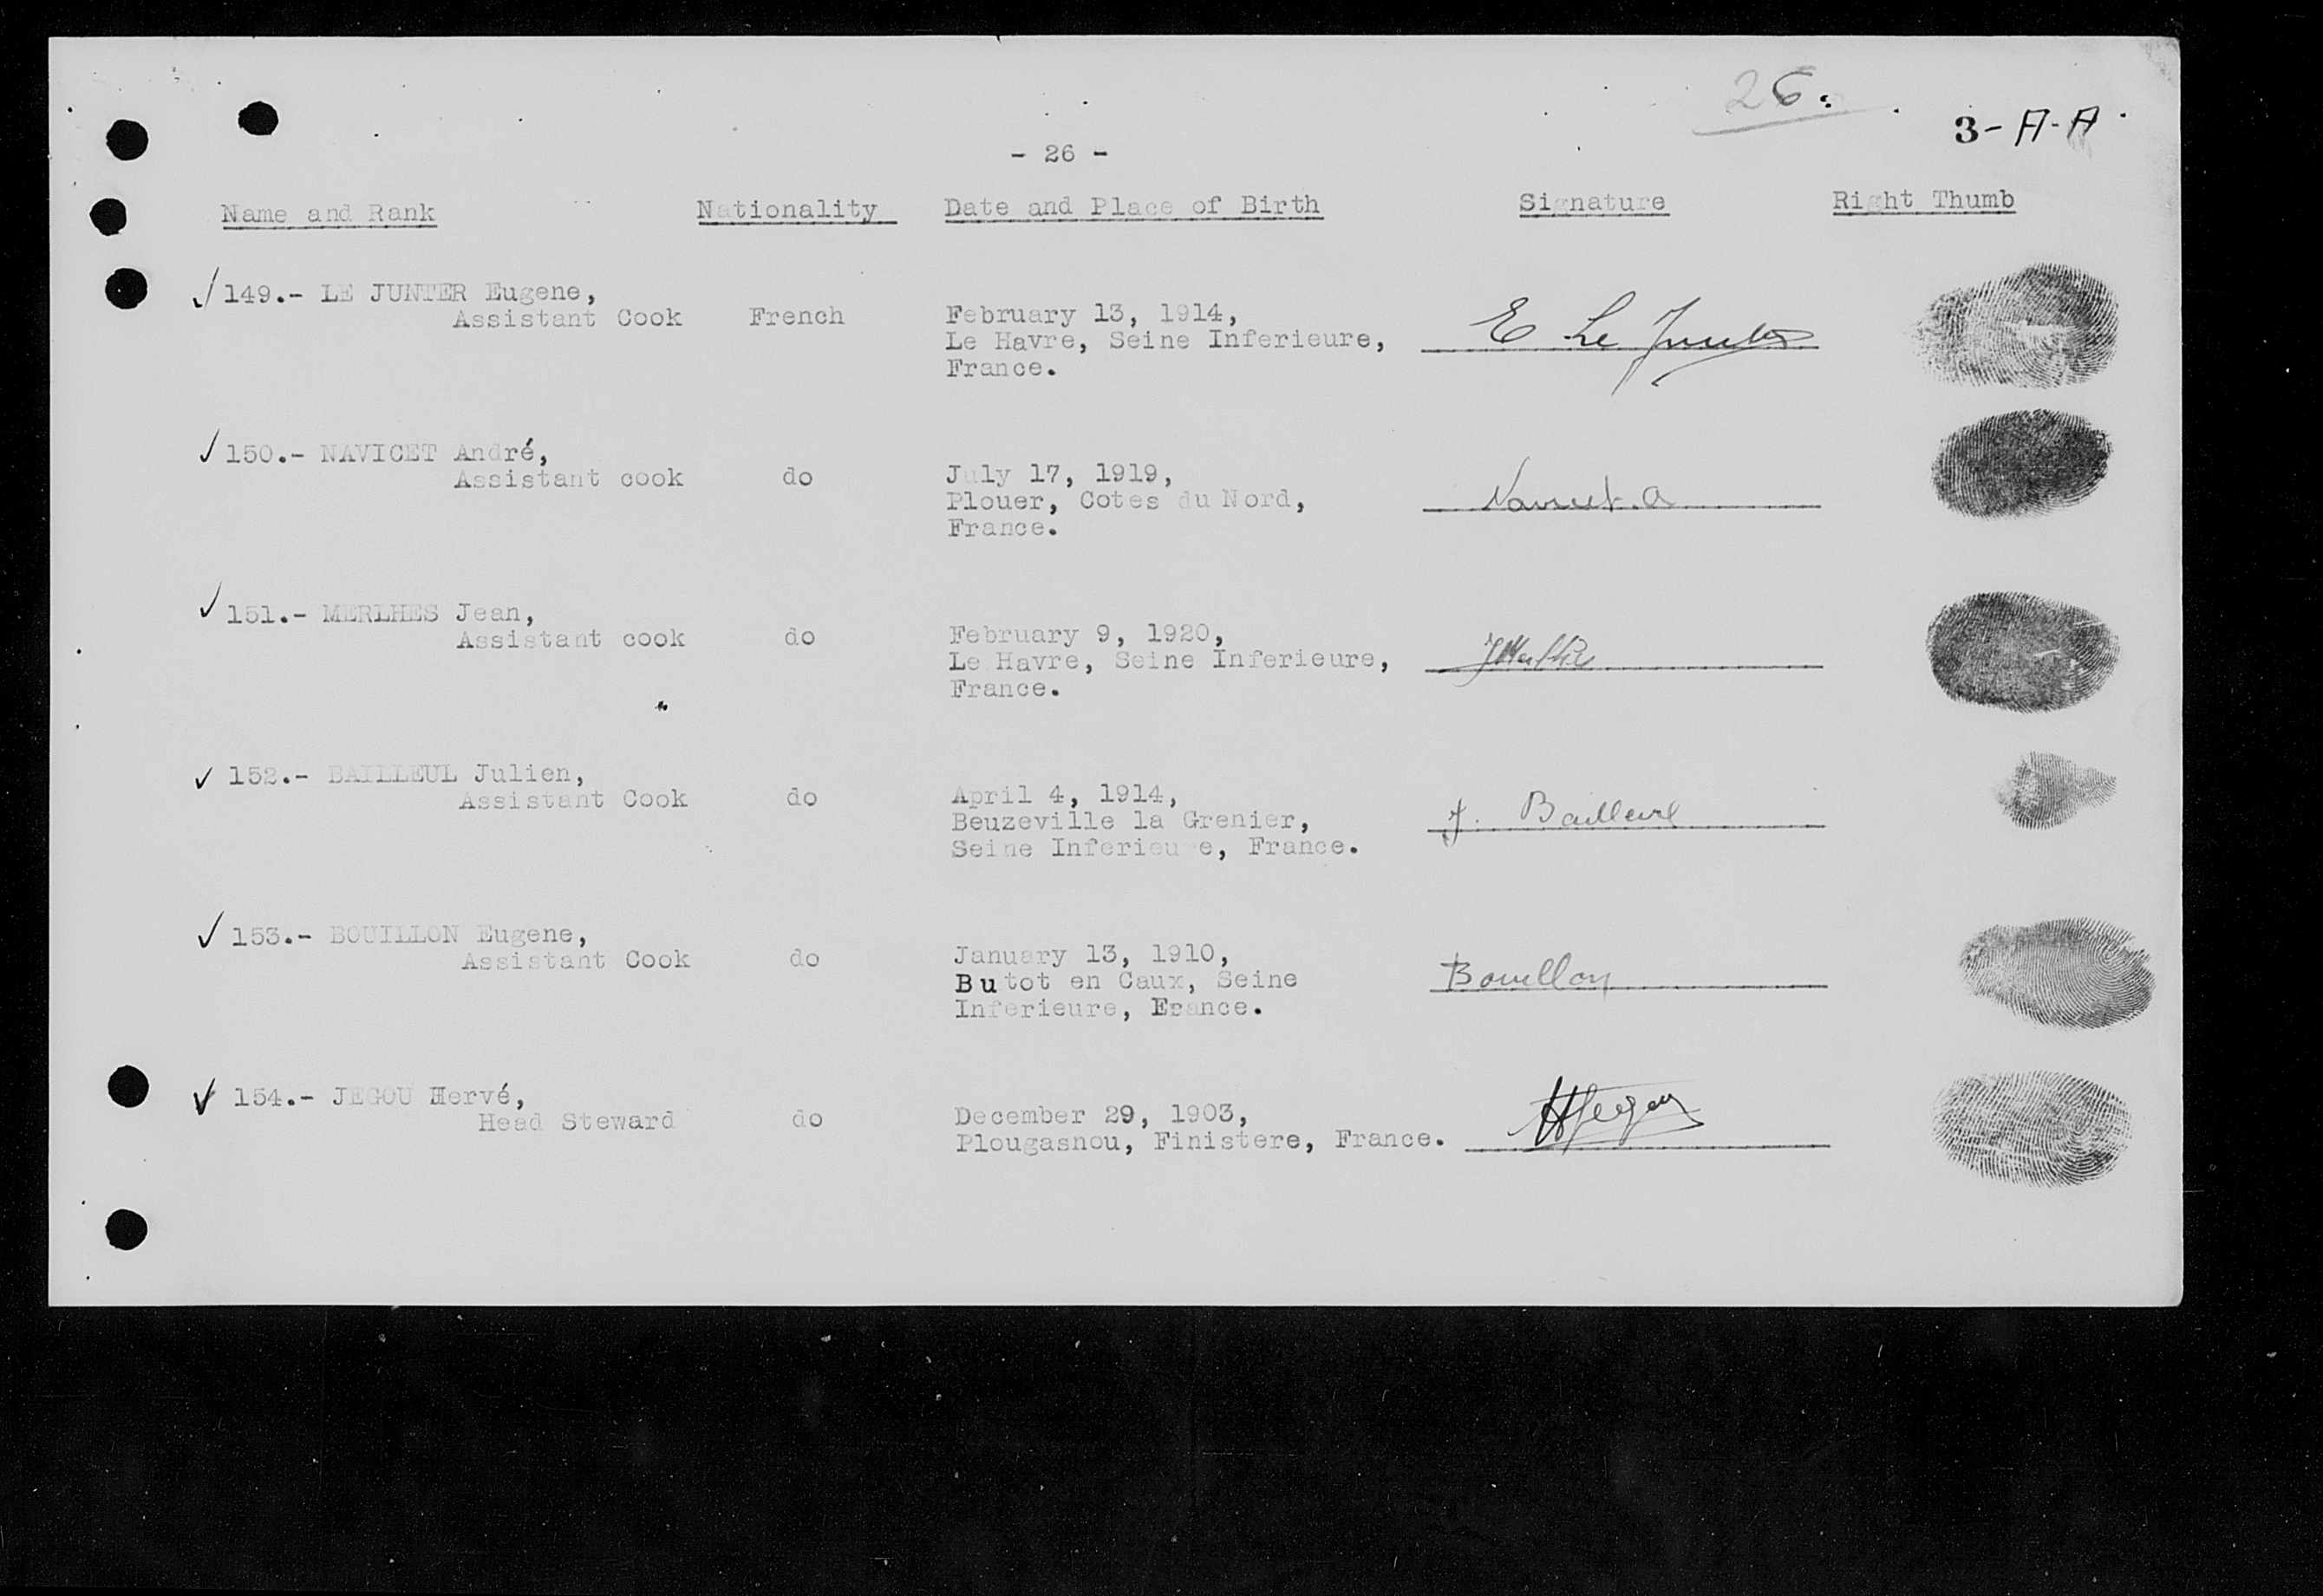 26.
3-A-A.
- 26 -
Name and Rank Nationality Date and Place of Birth Signature Right Thumb
149.- LE JUNTER Eugene,
Assistant Cook French February 13, 1914,
Le Havre, Seine Inferieure, E Le Junter
France.
150.- NAVICET André,
Assistant cook do July 17, 1919,
Plouer, Cotes du Nord, Navicet. a
France.
151.- MERLHES Jean,
Assistant cook do February 9, 1920,
Le Havre, Seine Inferieure,
France.
152.- BAILLEUL Julien,
Assistant Cook do April 4, 1914,
Beuzeville la Grenier, J. Bailleul
Seine Inferieure, France.
153.- BOUILLON Eugene,
Assistant Cook do January 13, 1910,
Butot en Caux, Seine Bouillon
Inferieure, France.
154.- JEGOU Hervé,
Head Steward do December 29, 1903,
Plougasnou, Finistere, France. HJegou